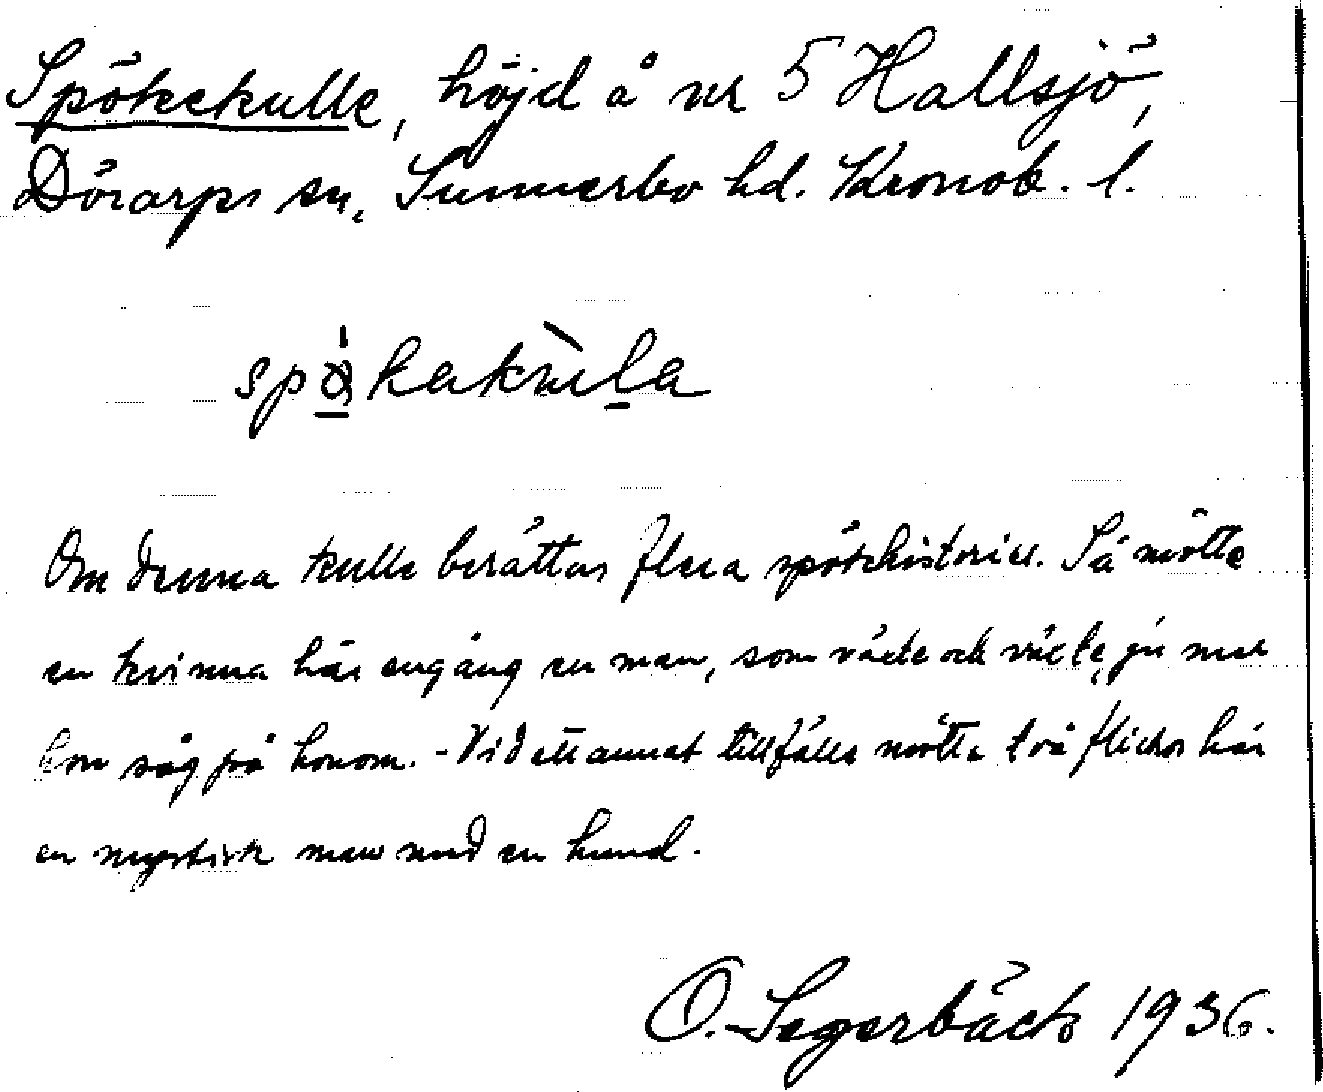 Spökekulle, höjd å nr 5 Hallsjö,
Dörarps sn, Sunnerbo hd. Kronob. l.
spö̀kakùla
Om denna kulle berättas flera spökhistorier. Så mötte
en kvinna här engång en man, som växte och växte, ju mer
hon såg på honom. - Vid ett annat tillfälle mötte två flickor här
en mystisk man med en hund.
O. Segerbäck 1936.